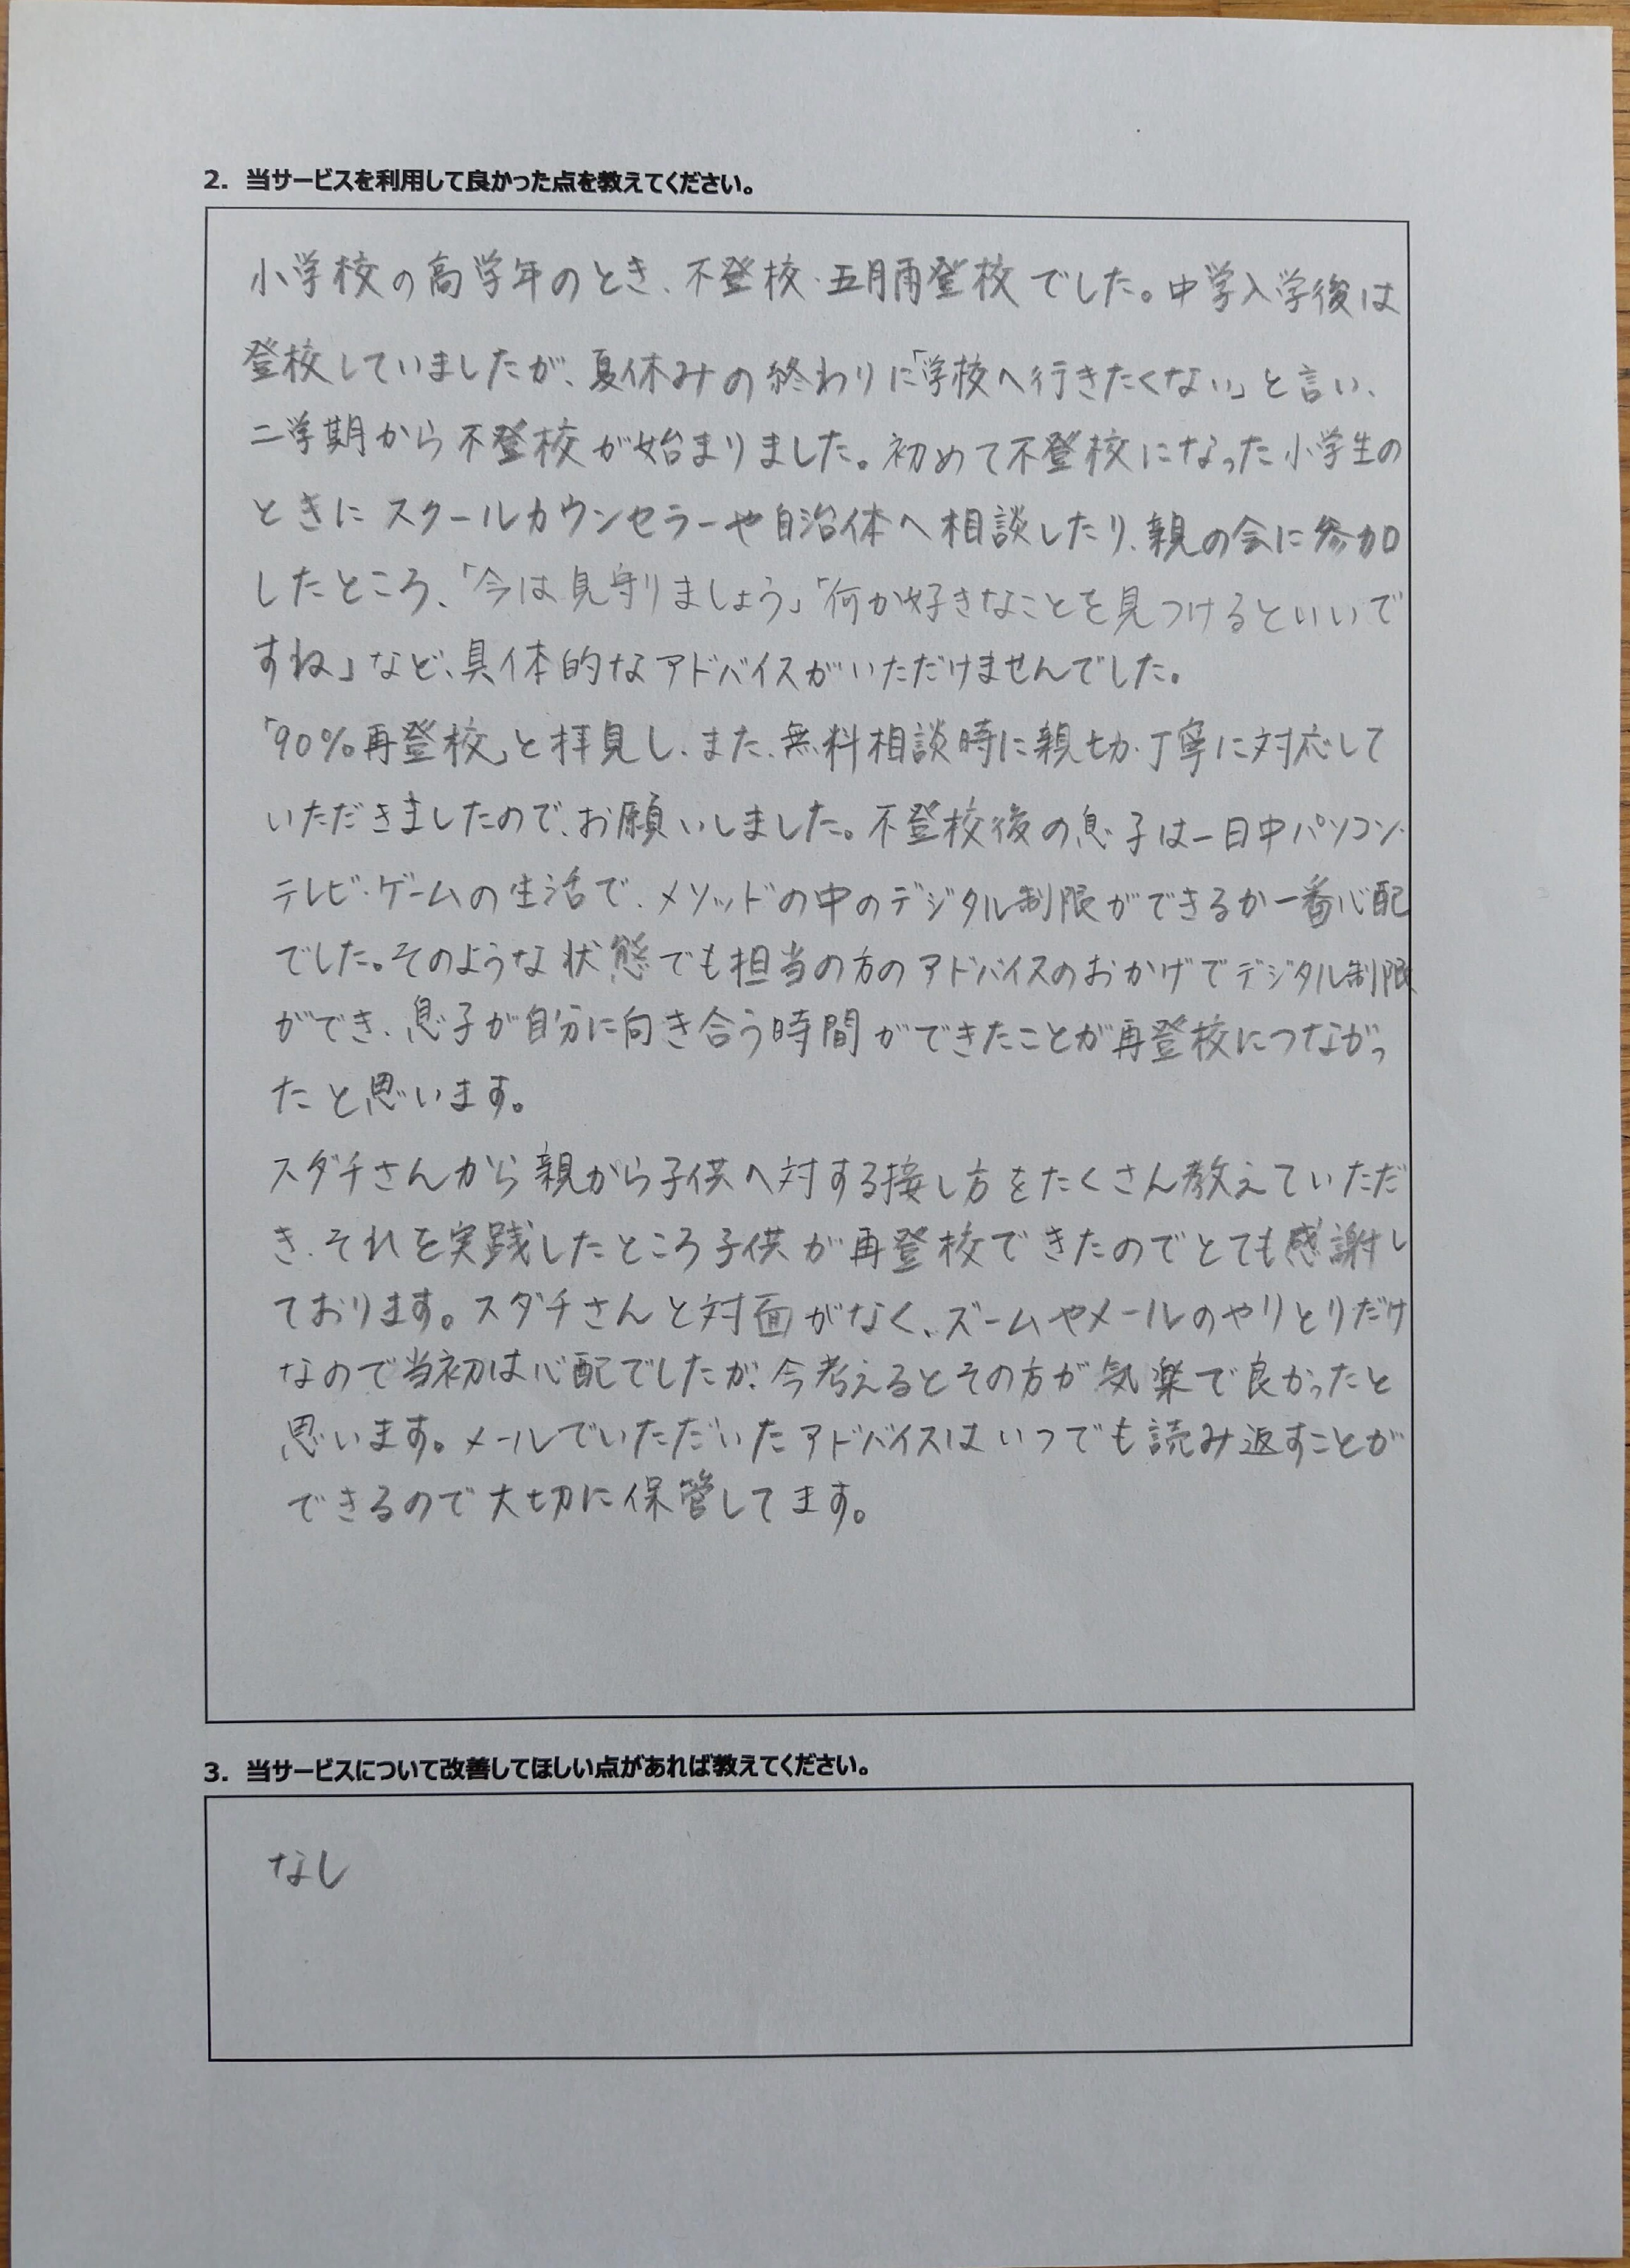 2. 当サービスを利用して良かった点を教えてください。
小学校の高学年のとき、不登校・五月雨登校でした。中学入学後は
登校していましたが、夏休みの終わりに「学校へ行きたくない」と言い、
二学期から不登校が始まりました。初めて不登校になった小学生の
ときにスクールカウンセラーや自治体へ相談したり、親の会に参加
したところ、「今は見守りましょう」「何か好きなことを見つけるといいで
すね」など、具体的なアドバイスがいただけませんでした。
「90%再登校」と拝見し、また、無料相談時に親切・丁寧に対応して
いただきましたので、お願いしました。不登校後の息子は一日中パソコン・
テレビ・ゲームの生活で、メソッドの中のデジタル制限ができるか一番心配
でした。そのような状態でも担当の方のアドバイスのおかげでデジタル制限
ができ、息子が自分に向き合う時間ができたことが再登校につながっ
たと思います。
スダチさんから親がら子供へ対する接し方をたくさん教えていただ
き、それを実践したところ子供が再登校できたのでとても感謝し
ております。スダチさんと対面がなく、ズームやメールのやりとりだけ
なので当初は心配でしたが、今考えるとその方が気楽で良かったと
思います。メールでいただいたアドバイスはいつでも読み返すことが
できるので大切に保管してます。
3. 当サービスについて改善してほしい点があれば教えてください。
なし